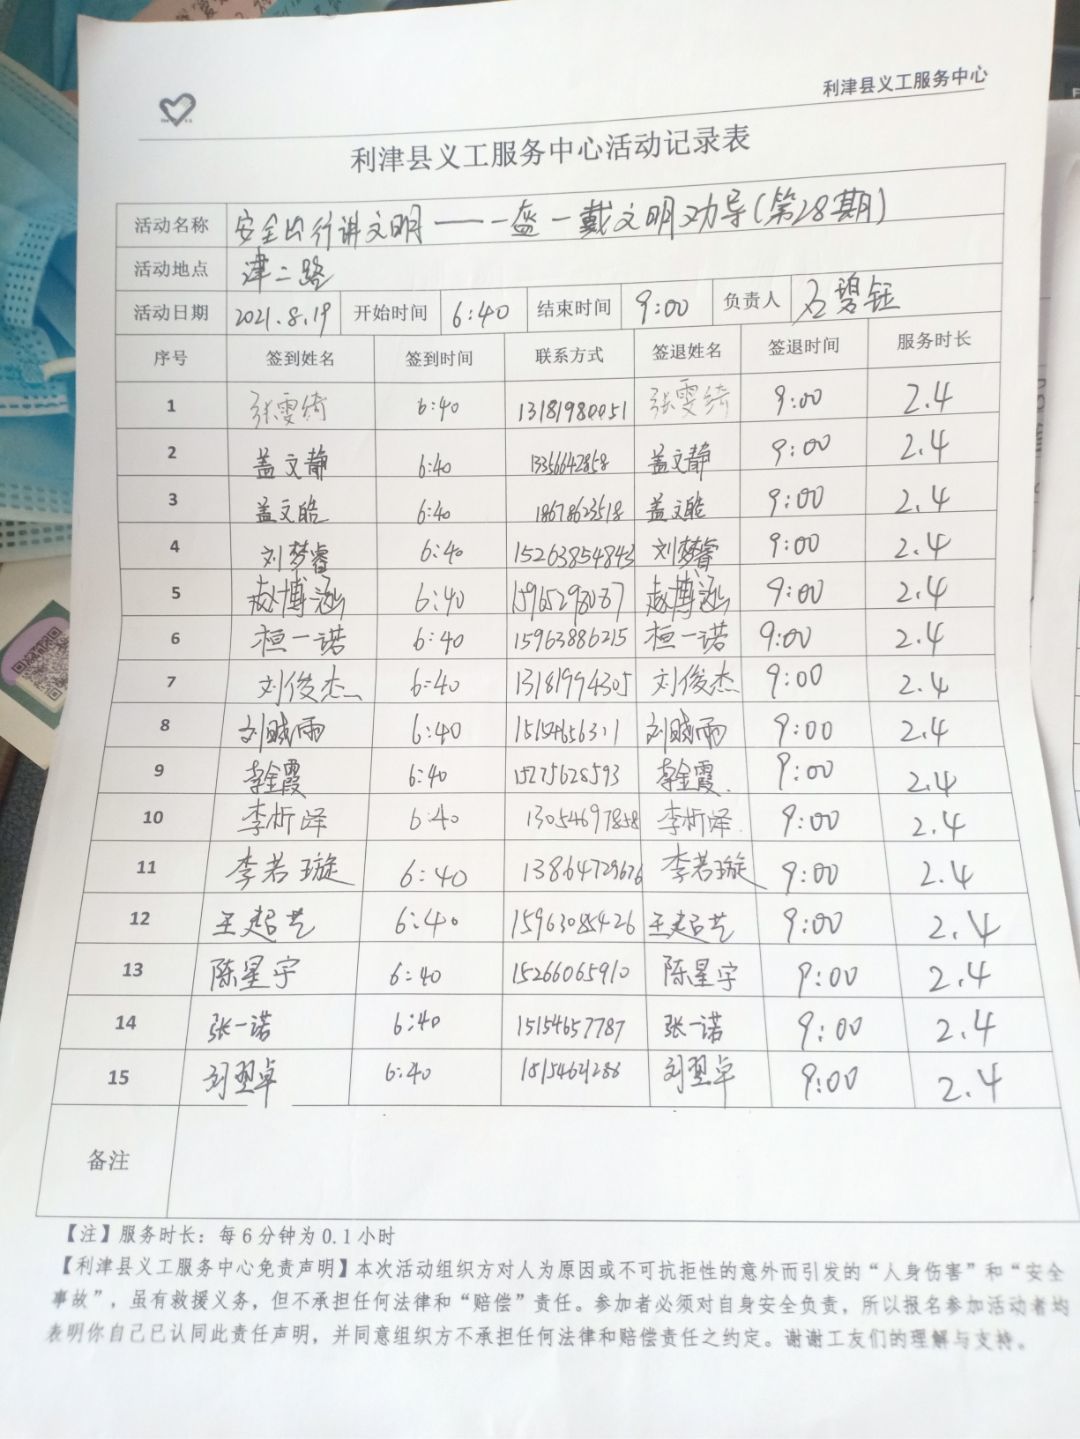 利津县义工服务中心
利津县义工服务中心活动记录表
活动名称 安全出行讲文明——一盔一戴文明劝导(第28期)
活动地点 津二路
活动日期 2021.8.19 开始时间 6:40 结束时间 9:00 负责人 石碧钰
序号 签到姓名 签到时间 联系方式 签退姓名 签退时间 服务时长
1 张雯绮 6:40 13181980051 张雯绮 9:00 2.4
2 盖文静 6:40 13356642858 盖文静 9:00 2.4
3 盖文皓 6:40 18678623518 盖文皓 9:00 2.4
4 刘梦睿 6:40 15263854843 刘梦睿 9:00 2.4
5 赵博涵 6:40 15965298087 赵博涵 9:00 2.4
6 桓一诺 6:40 15963886215 桓一诺 9:00 2.4
7 刘俊杰 6:40 13181994305 刘俊杰 9:00 2.4
8 6:40 9:00 2.4
9 李金霞 6:40 15275628593 李金霞 9:00 2.4
10 李析泽 6:40 13054697858 李析泽 9:00 2.4
11 李若璇 6:40 13864729676 李若璇 9:00 2.4
12 王起艺 6:40 15963085426 王起艺 9:00 2.4
13 陈星宇 6:40 15266065910 陈星宇 9:00 2.4
14 张一诺 6:40 15154657787 张一诺 9:00 2.4
15 刘翌卓 6:40 刘翌卓 9:00 2.4
备注
【注】服务时长：每6分钟为0.1小时
【利津县义工服务中心免责声明】本次活动组织方对人为原因或不可抗拒性的意外而引发的“人身伤害”和“安全
事故”，虽有救援义务，但不承担任何法律和“赔偿”责任。参加者必须对自身安全负责，所以报名参加活动者均
表明你自己已认同此责任声明，并同意组织方不承担任何法律和赔偿责任之约定。谢谢工友们的理解与支持。